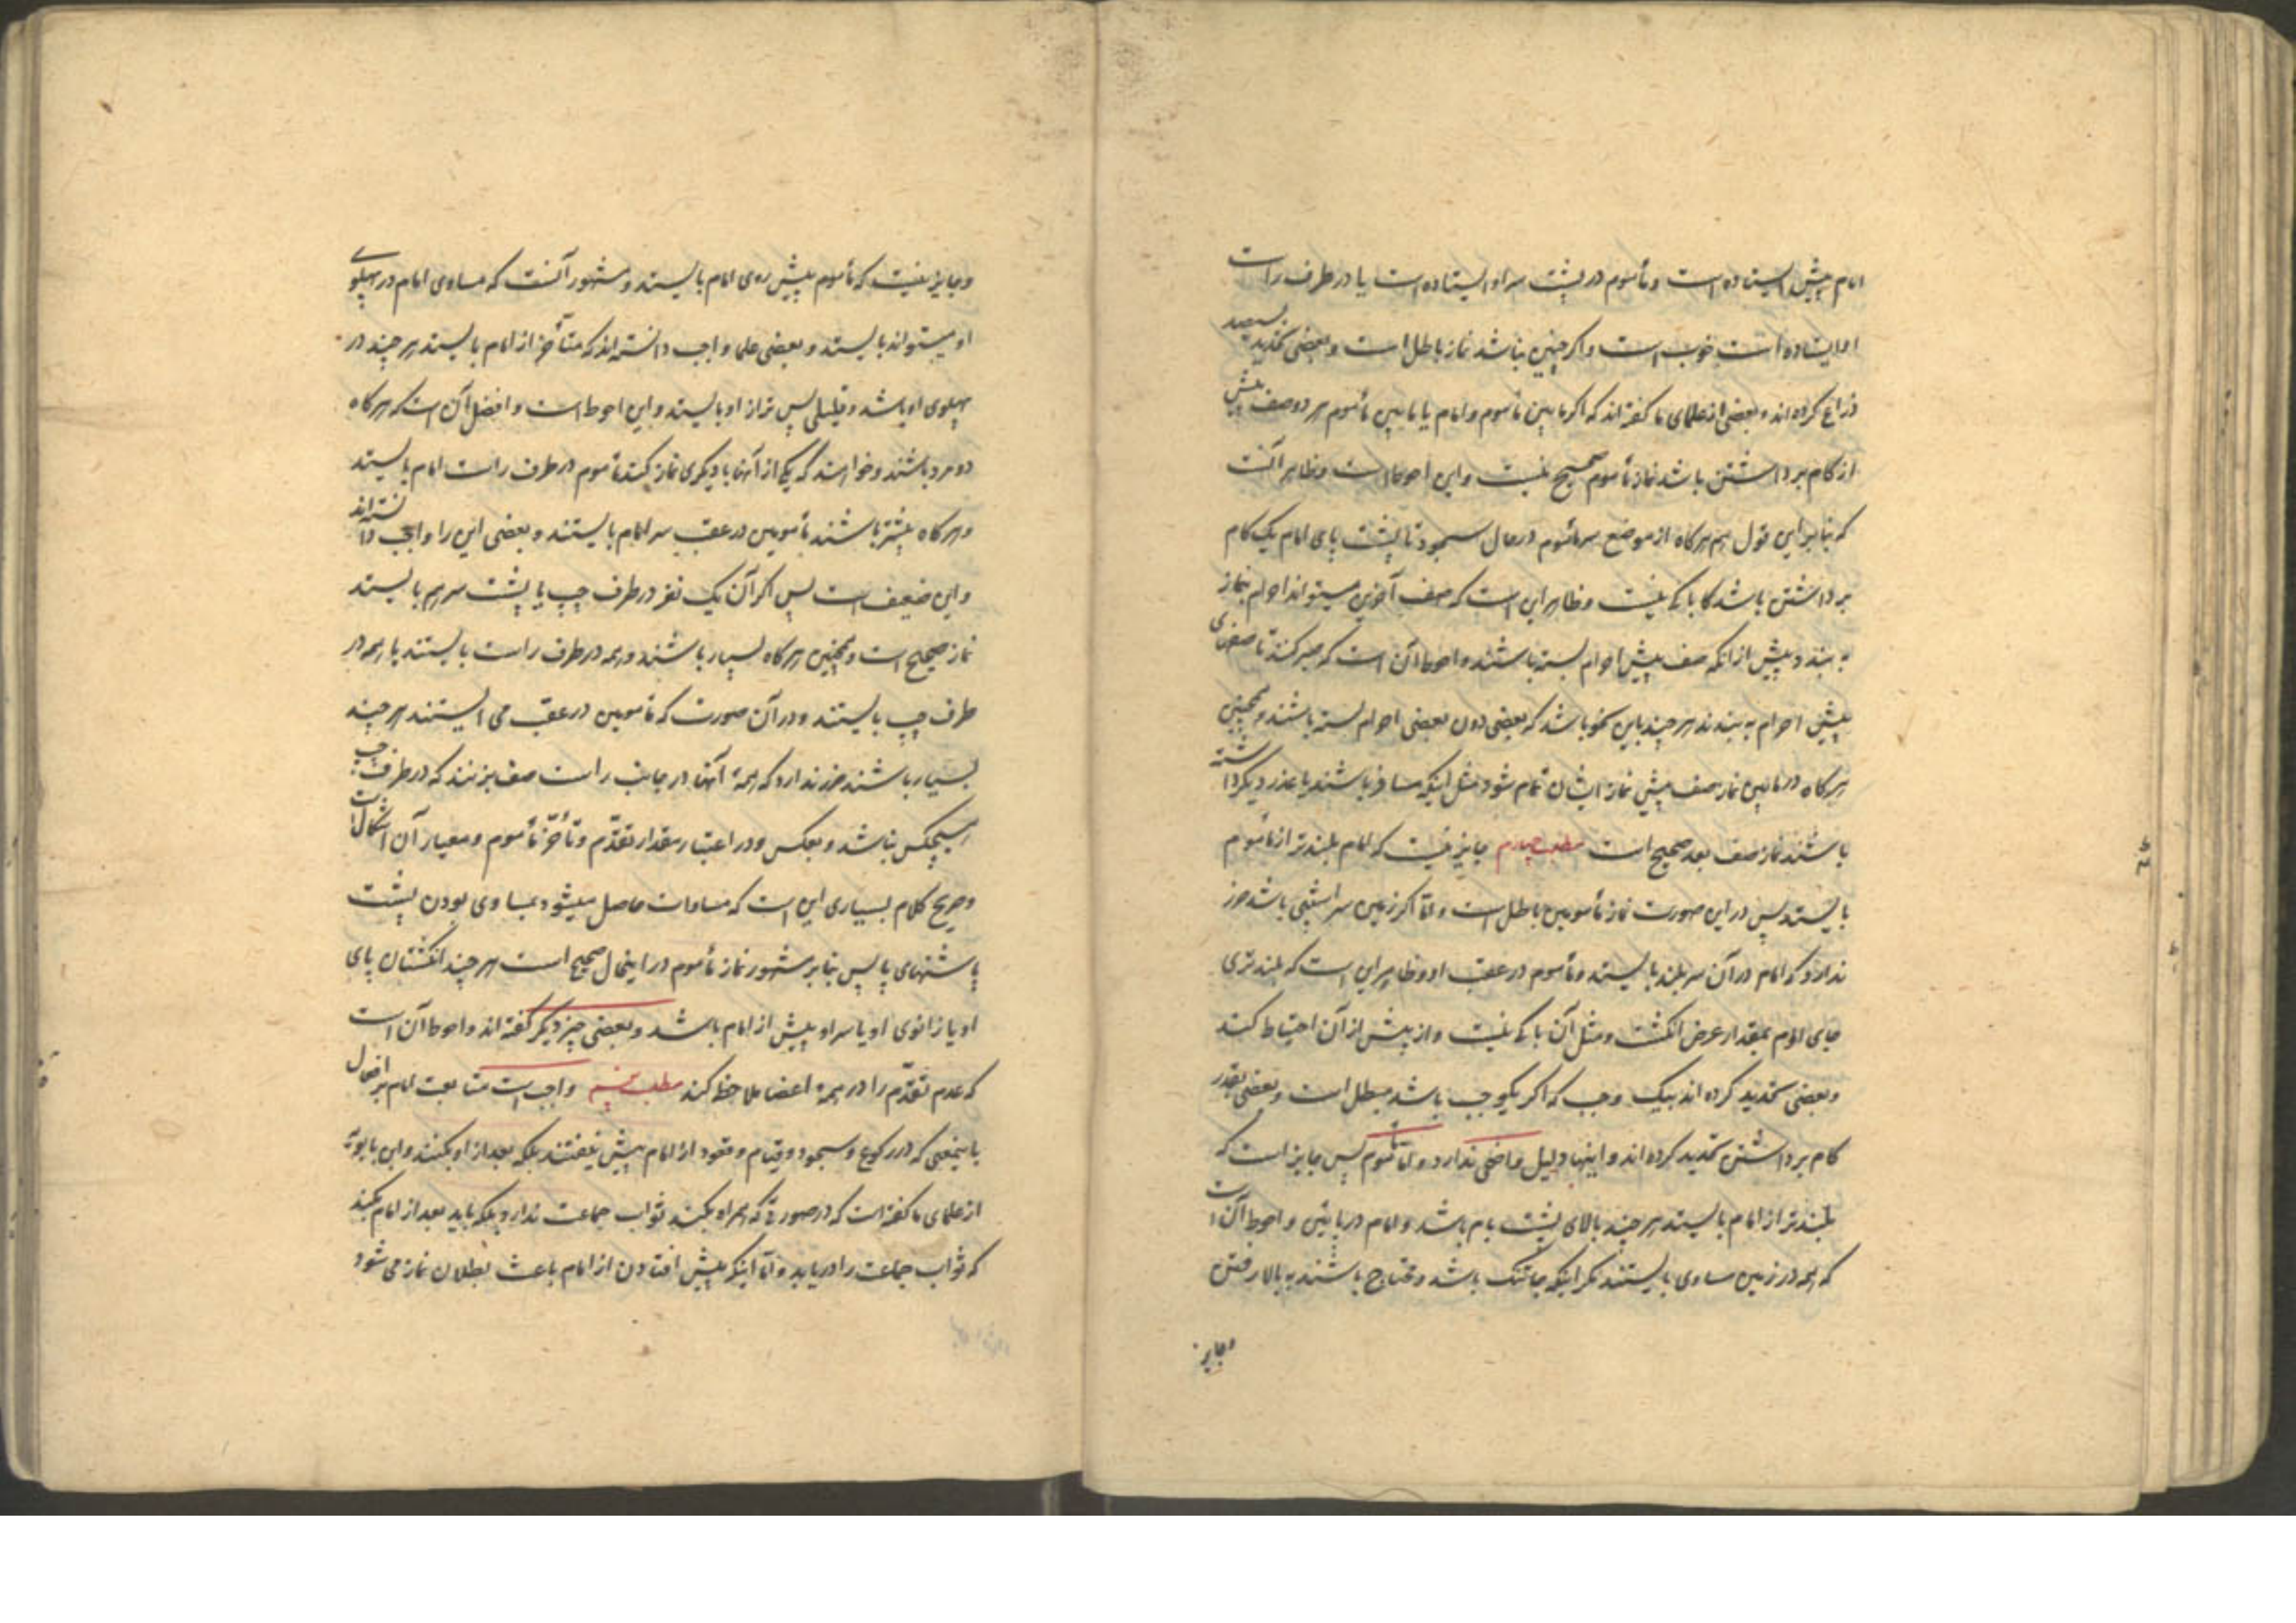 امام پیش ایستاده است و مأموم در پشت سر او ایستاده است یا در طرف راست
او ایستاده است خوب است و اگر چنین نباشد نماز باطل است و بعضی تحدید بسیصد
ذراع کرده اند و بعضی از علمای ما گفته اند که اگر مابین مأموم و امام یا مابین مأموم هر دو صف بیش
از گام برداشتن باشد نماز مأموم صحیح نیست و این احوط است و ظاهر آنست
که بنابر این قول هم هرگاه از موضع سر مأموم در حال سجود تا پشت پای امام یک گام
برداشتن باشد گا باکی نیست و ظاهر این است که صف آخرین میتواند احرام بنماز
به بندد پیش از انکه صف پیش احرام بسته باشند و احوط آن است که صبر کند تا صفهای
پیش احرام به بندند هر چند باین نحو باشد که بعضی دون بعضی احرام بسته باشند و همچنین
هرگاه در مابین نماز صف پیش نماز ایشان تمام شود مثل اینکه مسافر باشند یا عذر دیگر داشته
باشند نماز صف بعد صحیح است مطلب چهارم جایز نیست که امام بلندتر از مأموم
بایستد پس در این صورت نماز مأمومین باطل است و امّا اگر زمین سراشیبی باشد ضرر
ندارد که امام در آن سر بلند بایستد و مأموم در عقب او و ظاهر این است که بلندتری
جای امام بمقدار عرض انگشت و مثل آن باکی نیست و از بیش از آن احتیاط کند
و بعضی تحدید کرده اند بیک وجب که اگر یکوجب باشد مبطل است و بعضی بقدر
گام برداشتن تحدید کرده اند و اینها دلیل واضحی ندارد و امّا مأموم پس جایز است که
بلندتر از امام بایستد هر چند بالای پشت بام باشد و امام در پائین و احوط آن است
که همه در زمین مساوی بایستند مگر اینکه جا تنگ باشد و محتاج باشند به بالا رفتن
و جایز
و جایز نیست که مأموم پیش روی امام بایستد و مشهور آنست که مساوی امام در پهلوی
او میتواند بایستد و بعضی علما واجب دانسته اند که متأخر از امام بایستد هر چند در
پهلوی او باشد و قلیلی پس تر از او بایستد و این احوط است و افضل آن است که هرگاه
دو مرد باشند و خواهند که یکی از آنها با دیگری نماز کند مأموم در طرف راست امام بایستد
و هرگاه بیشتر باشند مأمومین در عقب سر امام بایستند و بعضی این را واجب دانسته اند
و این ضعیف است پس اگر آن یک نفر در طرف چپ یا پشت سر هم بایستد
نماز صحیح است و همچنین هرگاه بسیار باشند و همه در طرف راست بایستند یا همه در
طرف چپ بایستند و در آن صورت که مأمومین در عقب می ایستند هر چند
بسیار باشند ضرر ندارد که همهٔ آنها در جانب راست صف بزنند که در طرف چپ
هیچکس نباشد و بعکس و در اعتبار مقدار تقدّم و تأخّر مأموم و معیار آن اشکال است
و صریح کلام بسیاری این است که مساوات حاصل میشود بمساوی بودن پشت
پاشنهای پا پس بنابر مشهور نماز مأموم در اینحال صحیح است هر چند انگشتان پای
او یا زانوی او یا سر او پیش از امام باشد و بعضی چیز دیگر گفته اند و احوط آن است
که عدم تقدّم را در همهٔ اعضا ملاحظه کند مطلب پنجم واجب است متابعت امام در افعال
باینمعنی که در رکوع و سجود و قیام و قعود از امام پیش نیفتند بلکه بعد از او بکنند و ابن بابویه
از علمای ما گفته است که در صورتی که همراه بکند ثواب جماعت ندارد بلکه باید بعد از امام بکند
که ثواب جماعت را دریابد و امّا اینکه پیش افتادن از امام باعث بطلان نماز می شود